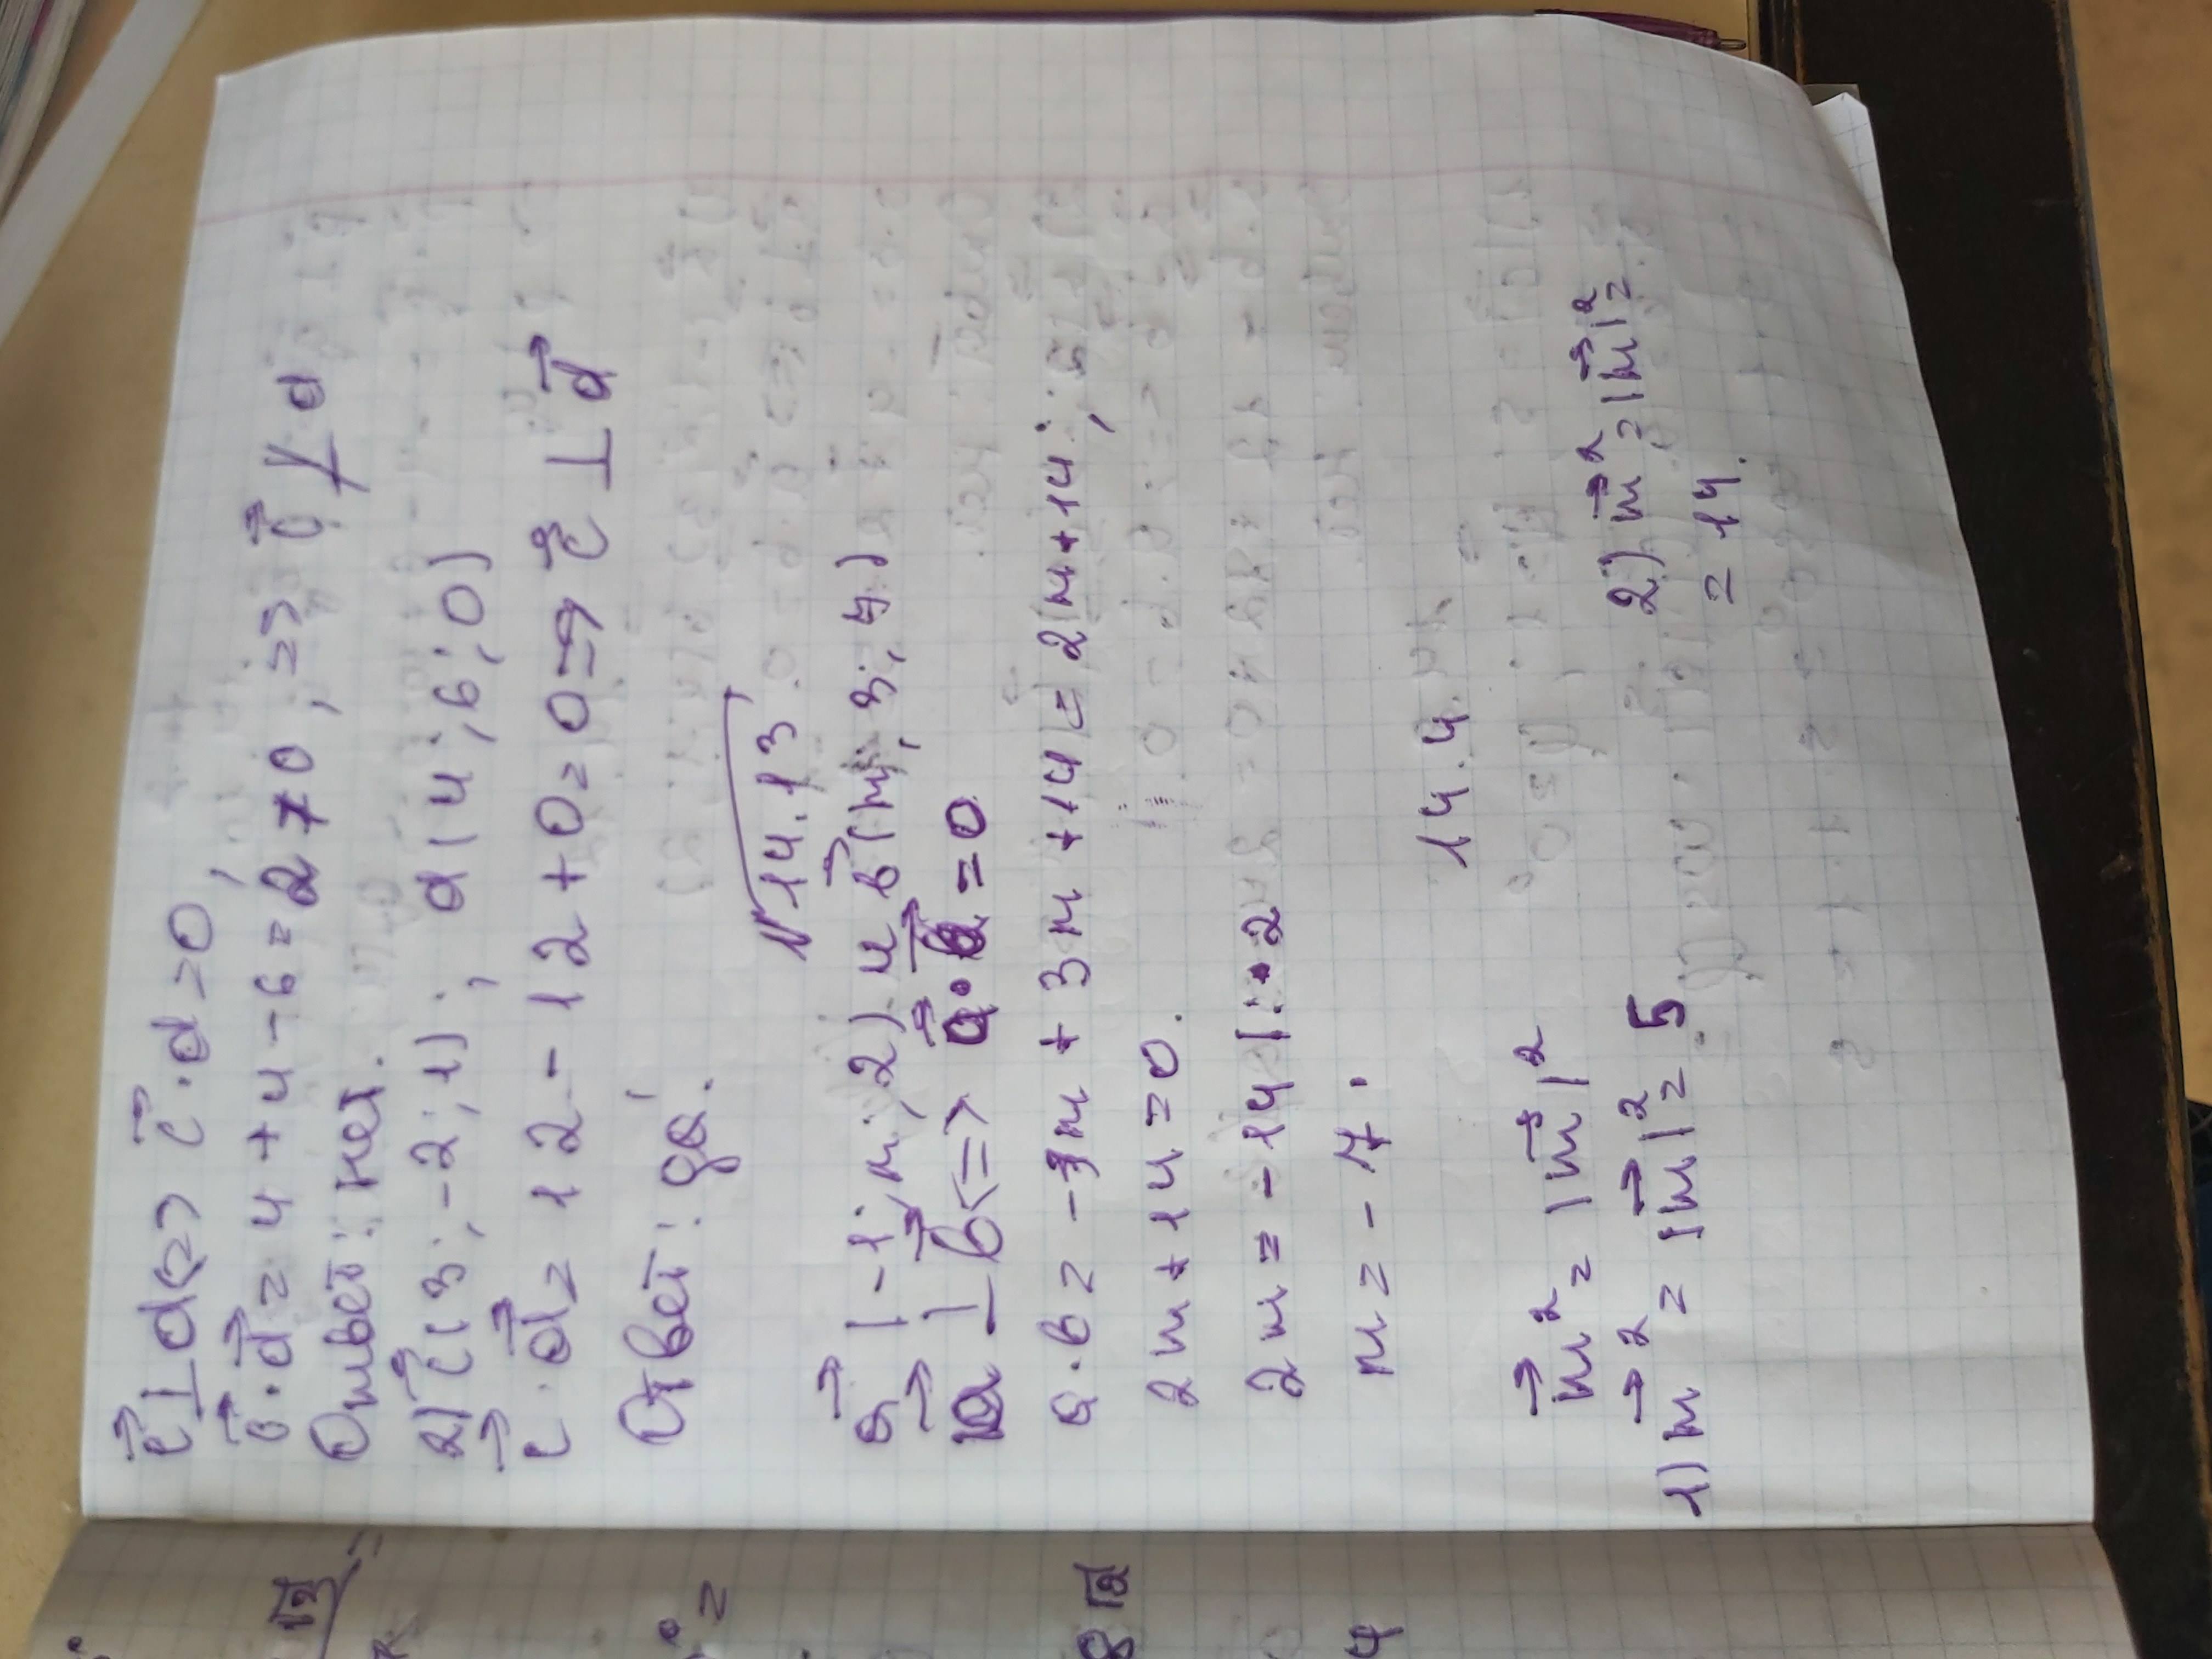 c⃗ ⊥ d <=> c⃗·d=0,
c⃗·d⃗ = 4+4-6=2≠0, => c⃗ ⊥̸ d
Ответ: нет.
2) c⃗(3;-2;1); d(4;6;0)
c⃗·d⃗ = 12-12+0=0 => c⃗ ⊥ d⃗
Ответ: да.
№14.13
a⃗(-1;m;2) и b⃗(m;3;7)
a⃗ ⊥ b⃗ <=> a⃗·b⃗=0
a·b = -m+3m+14=2m+14;
2m+14=0.
2m=-14 |:2
m=-7.
14.4
m⃗² = |m⃗|²
1) m⃗² = |m⃗|² = 5
2) m⃗² = |m⃗|² =
= 14.
8√2
4